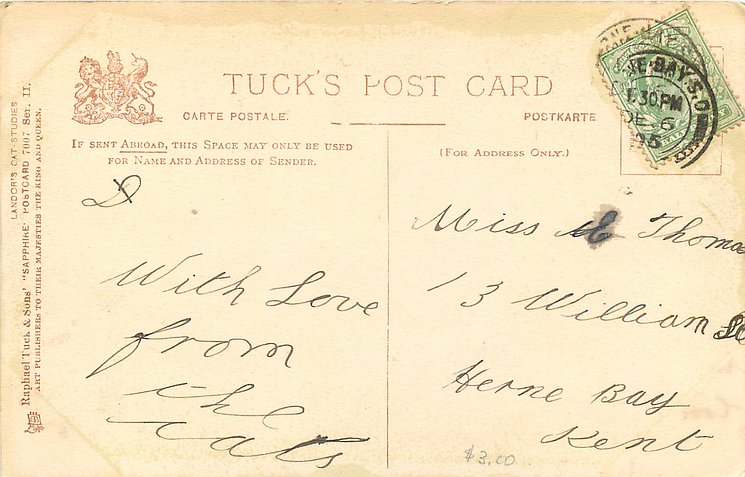 TUCK'S POST CARD
CARTE POSTALE.
POSTKARTE
IF SENT ABROAD, THIS SPACE MAY ONLY BE USED
FOR NAME AND ADDRESS OF SENDER.
(FOR ADDRESS ONLY.)
LANDOR'S CAT STUDIES
Raphael Tuck & Sons' "SAPPHIRE" POSTCARD 7007 Ser. II.
ART PUBLISHERS TO THEIR MAJESTIES THE KING AND QUEEN.
With Love
from
the
cats
Miss E Thomas
13 William
Herne Bay
Kent
$3.00
NE-BAY-S.O
1.30PM
DE 6
05